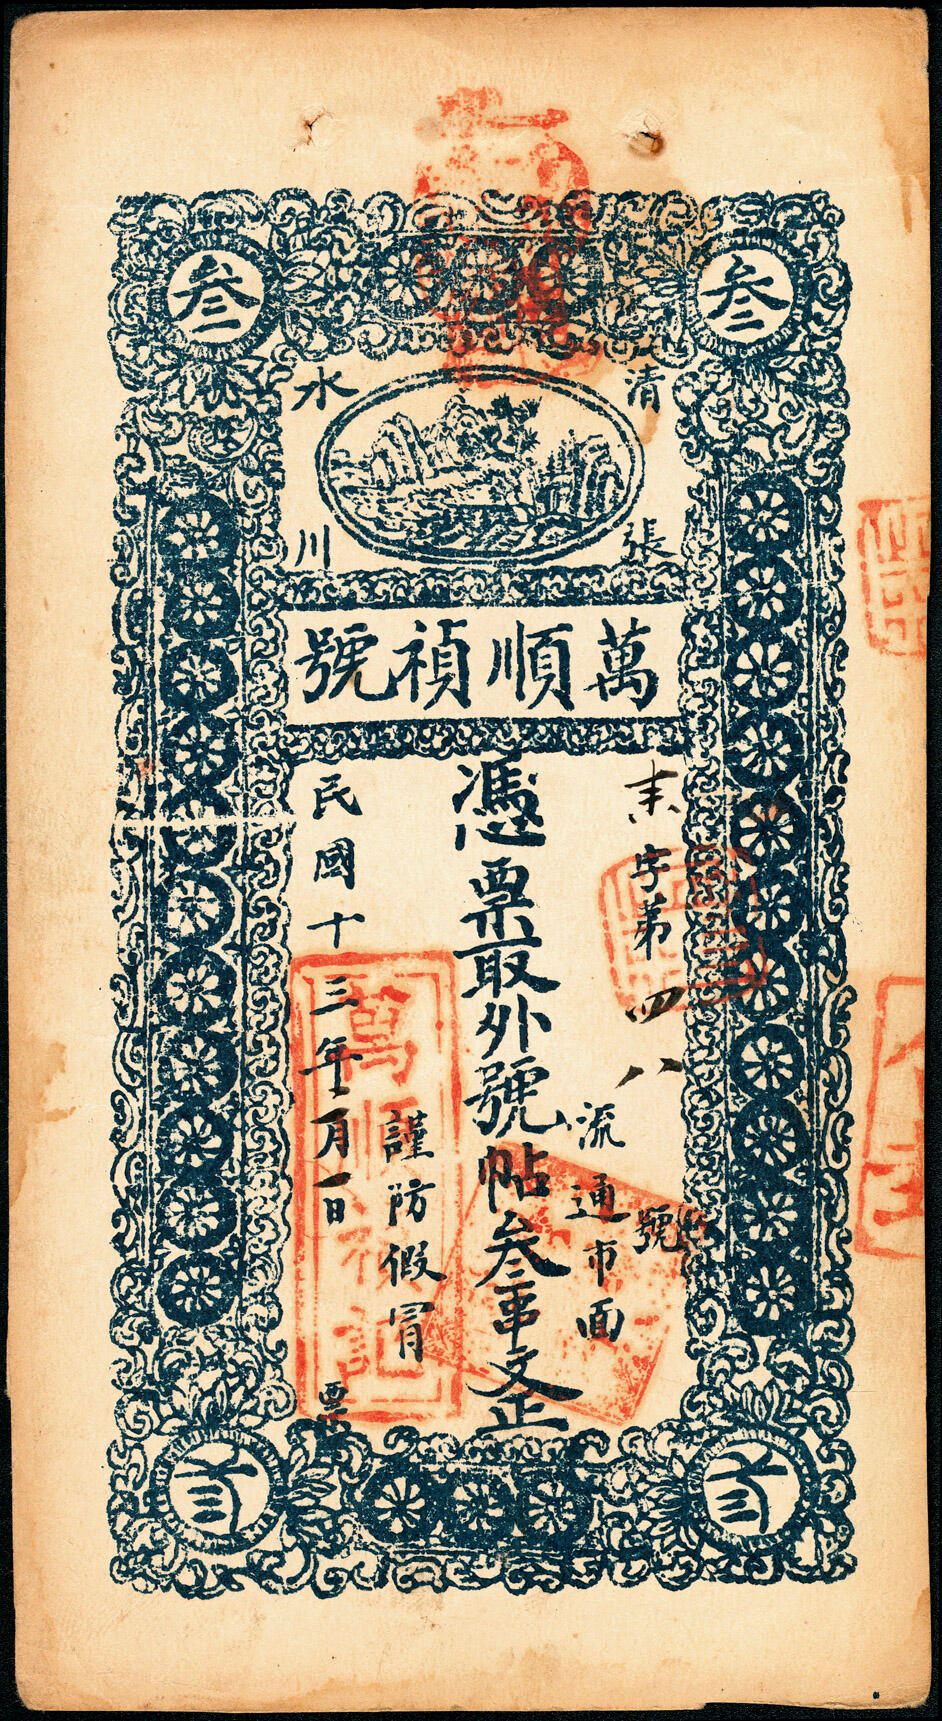 叁 叁
清水
張川
萬順禎號
字第四八號
流通市面
憑票取外號帖叁串文正
謹防假冒
民國十三年月一日票
萬順禎記